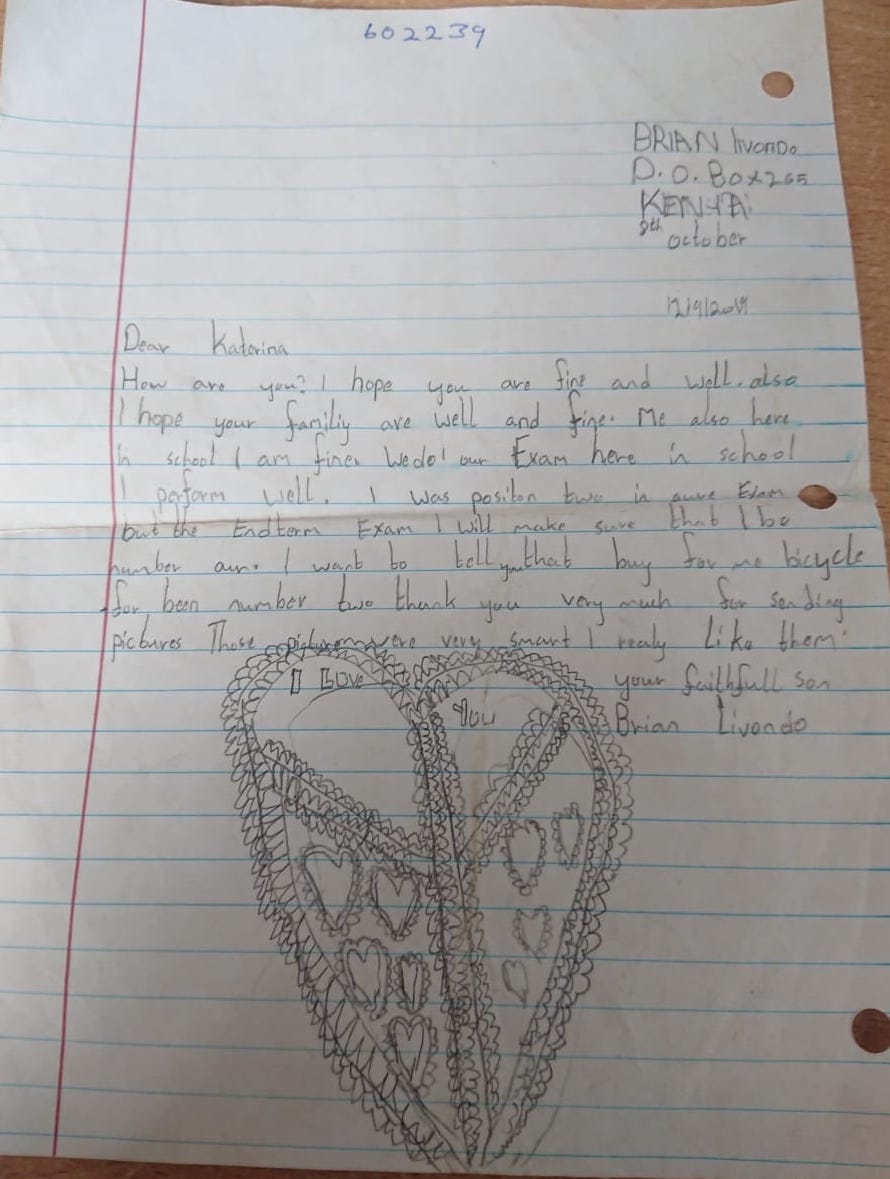 602239
BRIAN livondo
P.O. Box 265
KENYA
9th october
12/9/2019
Dear Katarina
How are you? I hope you are fine and well. also
I hope your familiy are well and fine. Me also here
in school I am fine. We do our Exam here in school
I perform well. I was positon two in Exam
but the Endterm Exam I will make sure that I be
number I want to tell you that buy for me bicycle
for been number two thank you very much for sending
pictures Those were very smart I realy like them
your faithfull son
Brian Livondo
I Love
You